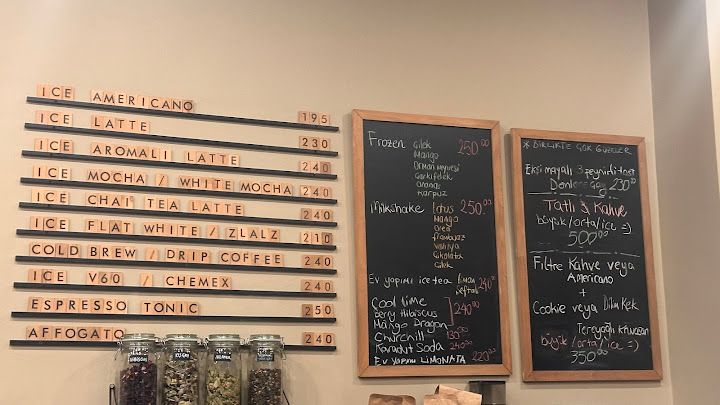 ICE AMERICANO 195
ICE LATTE 230
ICE AROMALI LATTE 240
ICE MOCHA / WHITE MOCHA 240
ICE CHAI TEA LATTE 240
ICE FLAT WHITE / ZLALZ 210
COLD BREW / DRIP COFFEE 240
ICE V60 / CHEMEX 240
ESPRESSO TONIC 250
AFFOGATO 240
Frozen Çilek 250.00
Mango
Orman meyvesi
Çarkıfelek
Orange
Karpuz
Milkshake Lotus 250.00
Mango
Oreo
Frambuaz
Vanilya
Çikolata
Çilek
Ev yapımı ice tea limon 240.00
şeftali
Cool lime
Bery Hibiscus 240.00
Mango Dragon
Churchill
Karadut Soda 240.00
Ev Yapımı LİMONATA 220.00
* BİRLİKTE ÇOK GÜZELLER
Ekşi mayalı 3 peynirli tost
230.00
Tatlı & Kahve
büyük/orta/ice =)
500.00
Filtre Kahve veya
Americano
+
Cookie veya Dilim Kek
Tereyağlı Kruvasan
büyük /orta/ice =)
350.00